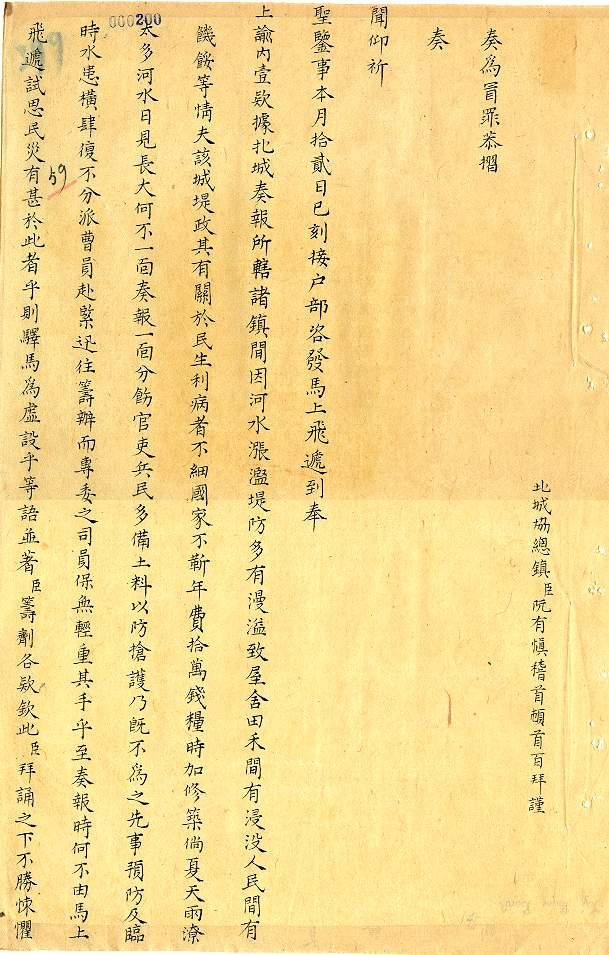 北城協總鎮臣阮有慎稽首頓首百拜謹
奏為冒罪恭摺
奏
聞仰祈
聖鑒事本月拾貳日巳刻接户部咨發馬上飛遞到奉
上諭內壹欵據北城奏報所轄諸鎮間因河水漲濫堤防多有漫溢致屋舍田禾間有浸没人民間有
饑餒等情夫該城堤政其有關於民生利病者不細國家不靳年費拾萬錢糧時加修築倘夏天雨潦
太多河水日見長大何不一面奏報一面分飭官吏兵民多備土料以防搶護乃既不為之先事預防及臨
時水患橫肆復不分派曹員赴緊迅往籌辦而專委之司員保無輕重其手乎至奏報時何不由馬上
飛遞試思民災有甚於此者乎則驛馬為虛設乎等語並著臣籌劑各欵欽此臣拜誦之下不勝悚懼
000200
59